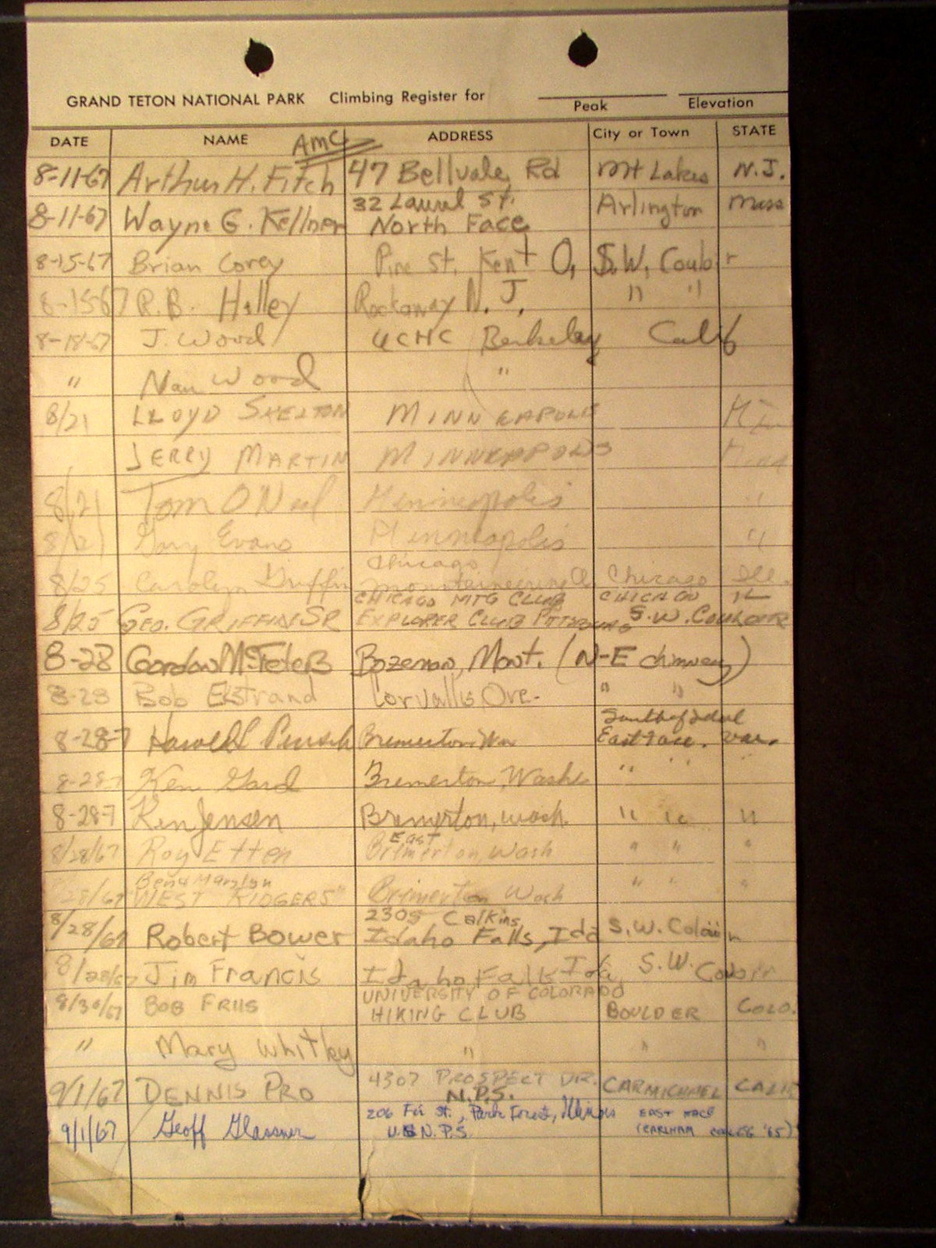 GRAND TETON NATIONAL PARK Climbing Register for
Peak Elevation
DATE NAME ADDRESS City or Town STATE
AMC
8-11-67 Arthur H. Fitch 47 Bellvale Rd Mt Lakes N.J.
32 Laurel St.
8-11-67 Wayne G. Kellner North Face Arlington Mass
8-15-67 Brian Corey Pine St. Kent O, S.W. Couloir
8-15-67 R.B. Halley Rockaway N.J. " "
8-18-67 J. Wood UCHC Berkeley Calif
" Nan Wood "
8/21 LLOYD SKELTON MINNEAPOLIS
JERRY MARTIN MINNEAPOLIS Minn
8/21 Tom O'Neil Minneapolis "
8/21 Gary Evans Minneapolis "
Chicago
8/25 Carolyn Mountaineering Chicago Ill.
CHICAGO MTG CLUB CHICAGO IL
8/25 GEO. GRIFFIN SR EXPLORER CLUB PITTSBURG S.W. COULOIR
8-28 Gordon Bozeman, Mont. (N-E chimney)
8-28 Bob Ekstrand Corvallis Ore. " "
8-28-7 Harold Bremerton, Wn East face. var.
8-28-7 Ken Gard Bremerton, Wash " " "
8-28-7 Ken Jensen Bremerton, Wash. " " "
East
8/28/67 Roy Etten Bremerton, Wash " " "
8/28/67 "WEST RIDGERS" Bremerton Wash " " "
2305 Calkins,
8/28/67 Robert Bower Idaho Falls, Ida S.W. Coloir
8/28/67 Jim Francis Idaho Falls Ida S.W. Couoir
UNIVERSITY OF COLORADO
8/30/67 BOB FRIIS HIKING CLUB BOULDER COLO.
" Mary Whitley " " "
4307 PROSPECT DR.
9/1/67 DENNIS PRO N.P.S. CARMICHAEL CALIF
206 Fir St., Park Forest, Illinois EAST FACE
9/1/67 Geoff Glassner U.S.N.P.S. (EARLHAM '65)